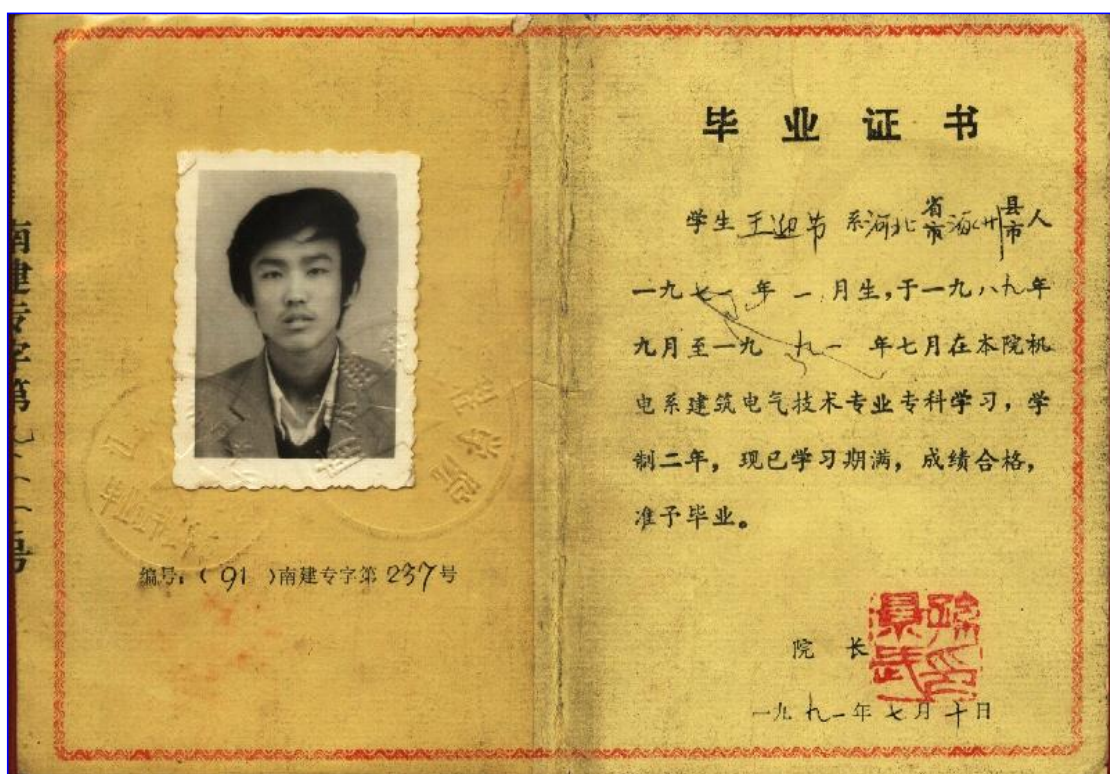 南建专字第
号
编号:( 91 )南建专字第 237 号
毕业证书
学生 王迎节 系河北 省市 涿州 县市 人
一九七一年 一 月生,于一九八九年
九月至一九 九一 年七月在本院机
电系建筑电气技术专业专科学习,学
制二年,现已学习期满,成绩合格,
准予毕业。
院 长
一九九一年七月十日